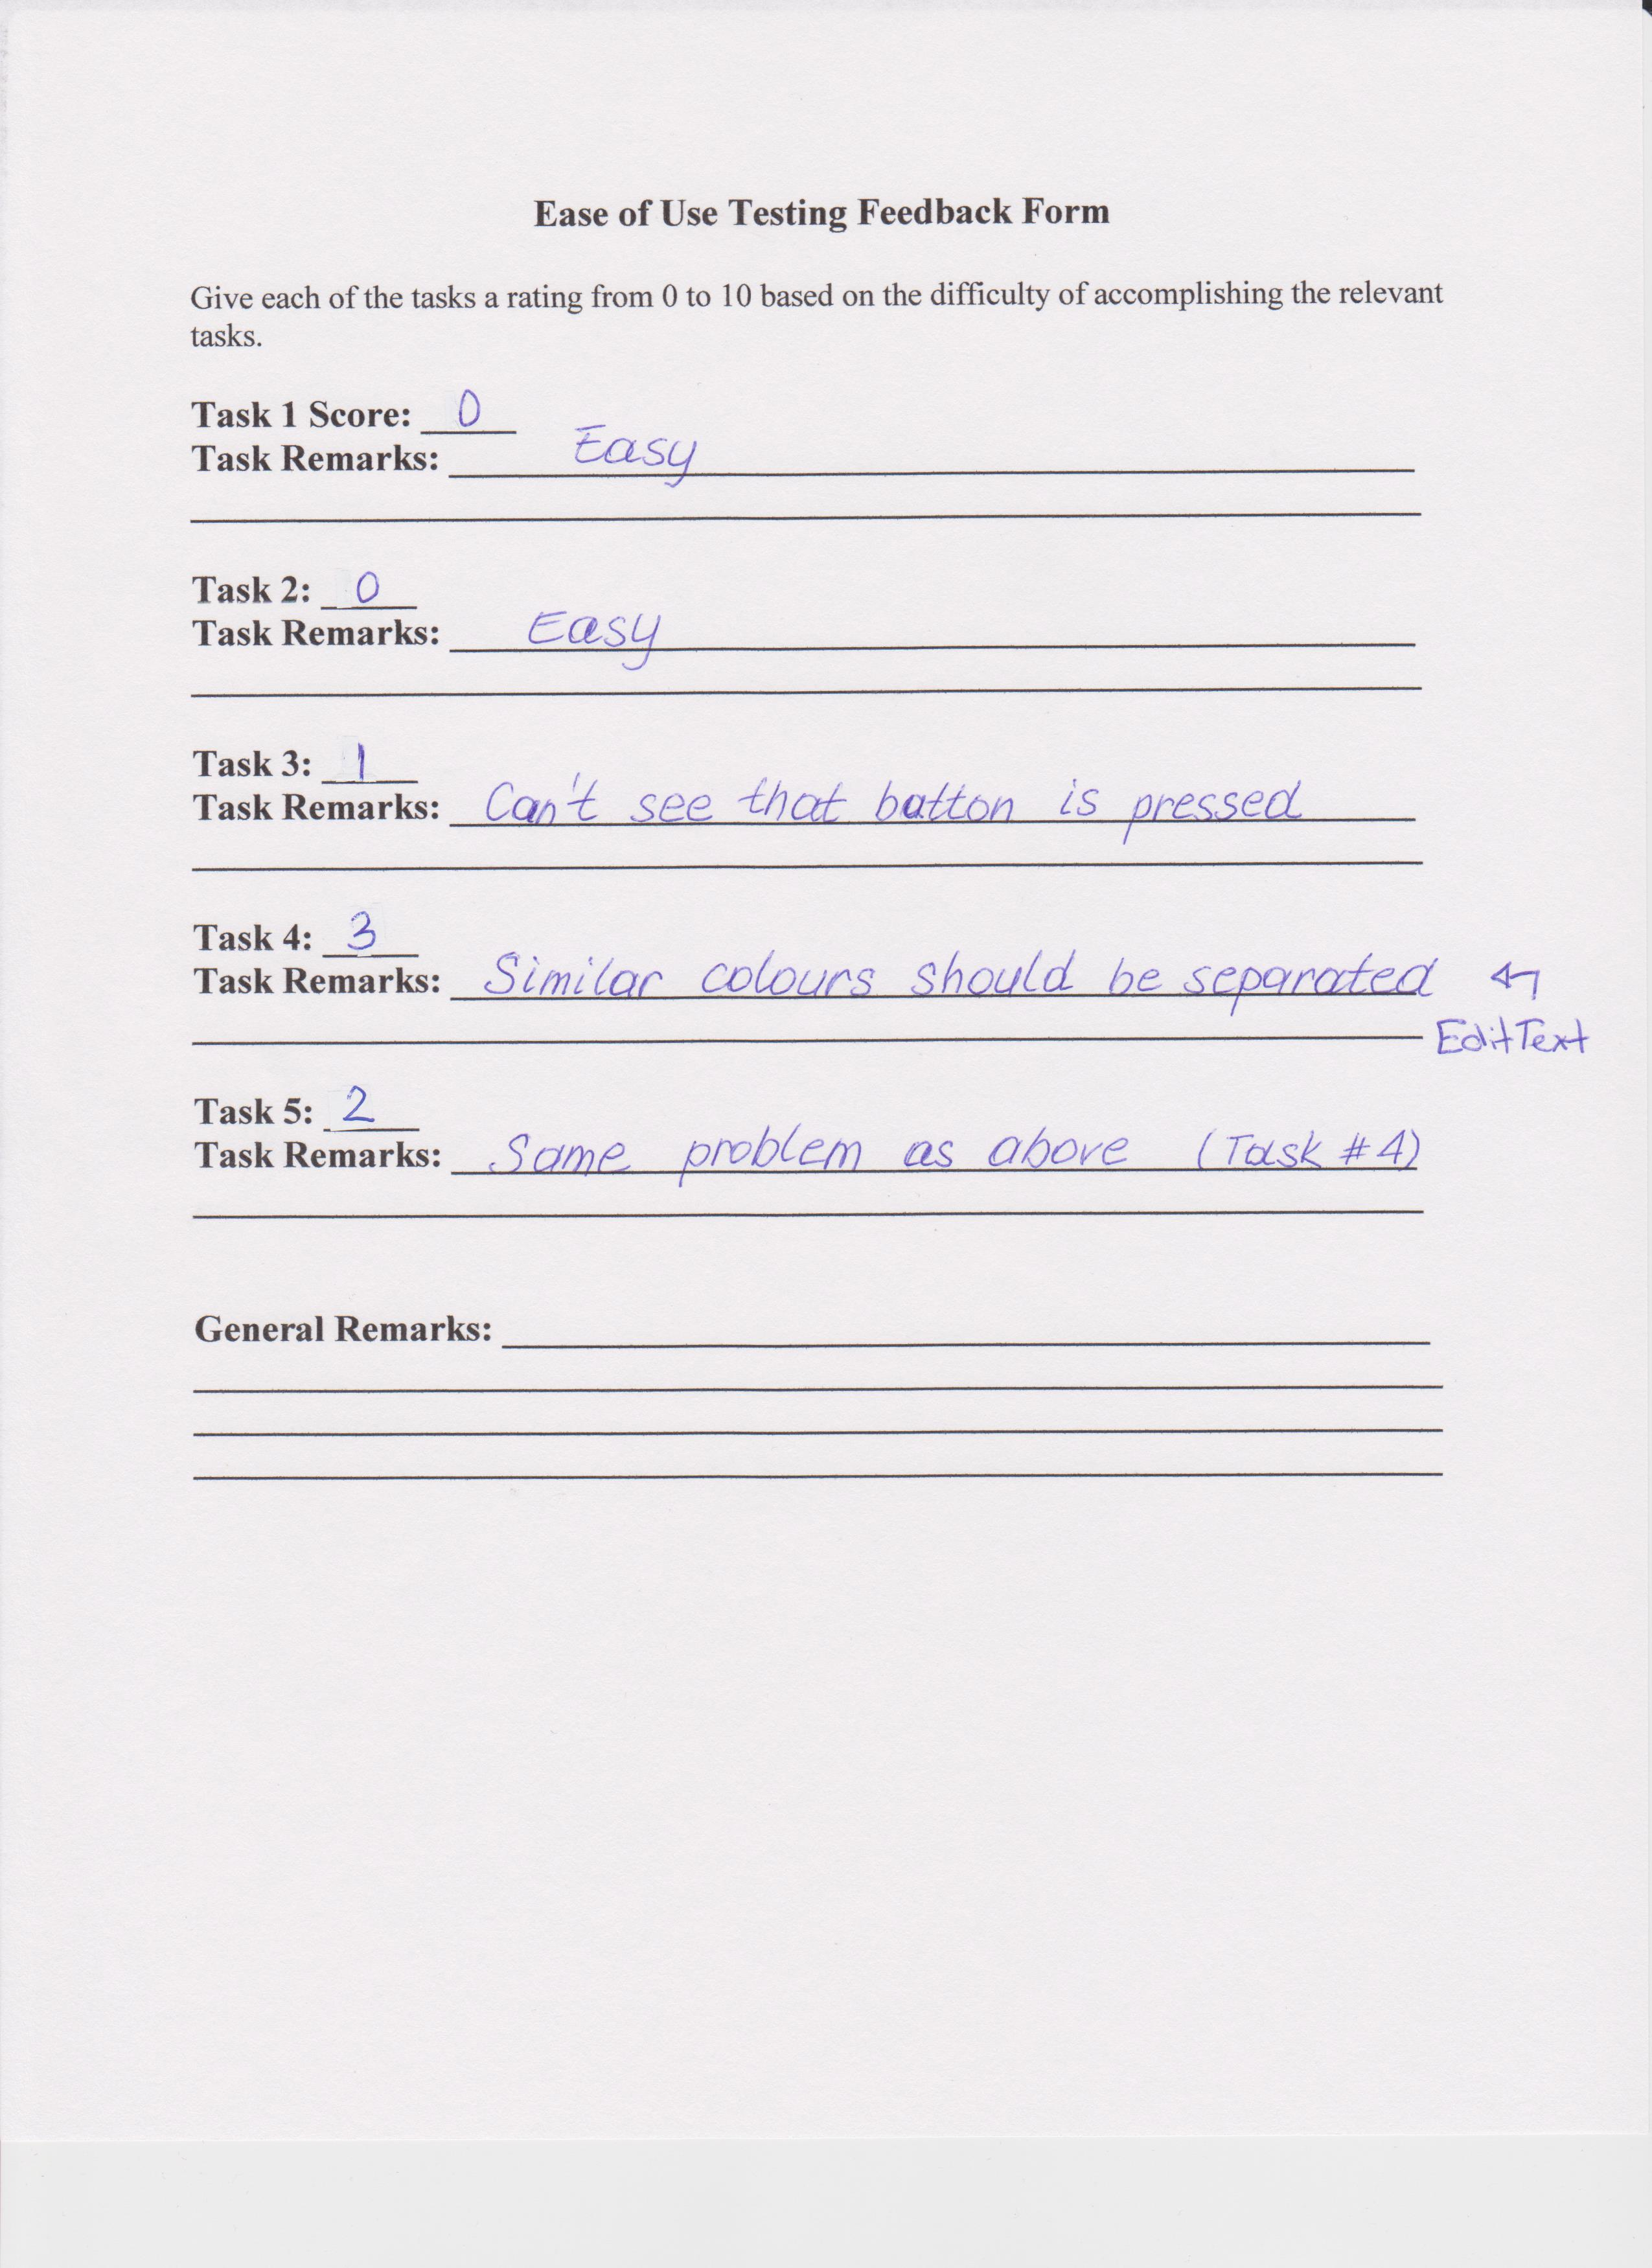 Ease of Use Testing Feedback Form
Give each of the tasks a rating from 0 to 10 based on the difficulty of accomplishing the relevant
tasks.
Task 1 Score: 0
Task Remarks: Easy
Task 2: 0
Task Remarks: Easy
Task 3: 1
Task Remarks: Can't see that button is pressed
Task 4: 3
Task Remarks: Similar colours should be separated
EditText
Task 5: 2
Task Remarks: Same problem as above (Task #4)
General Remarks: